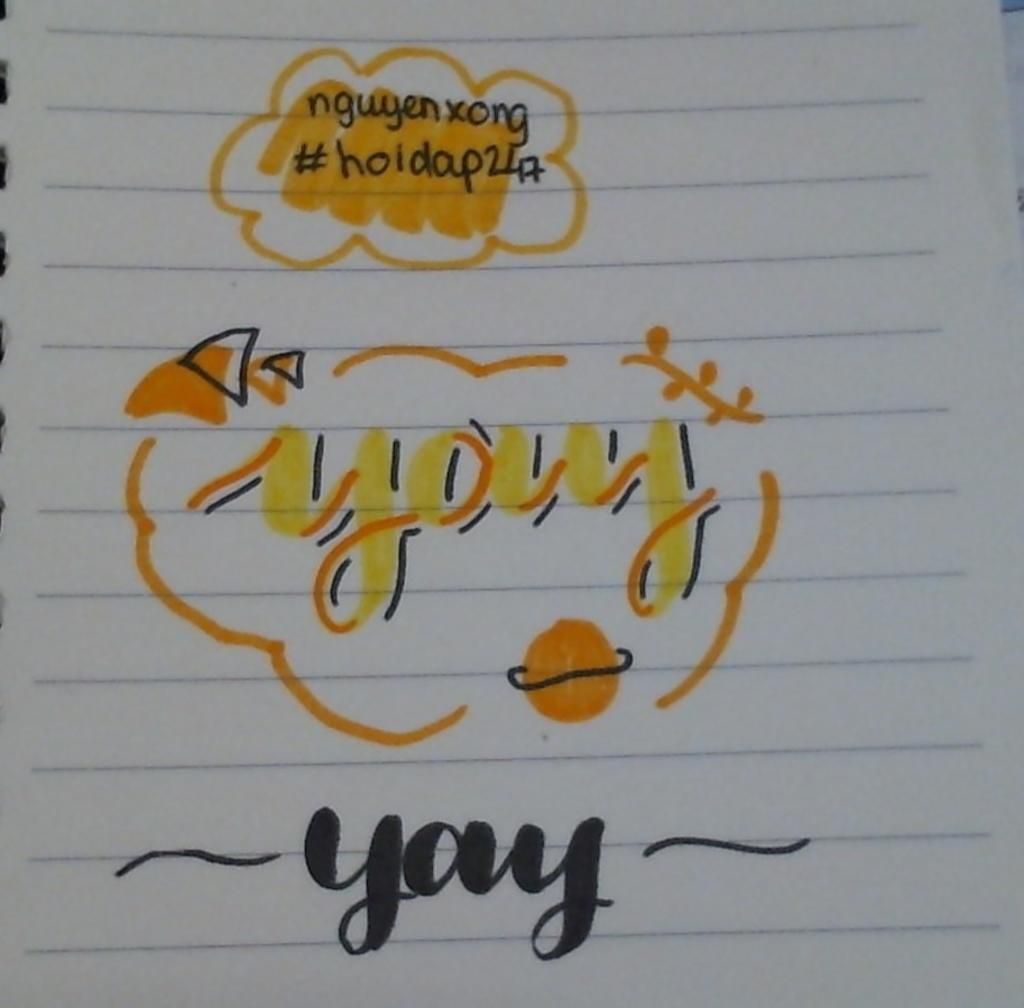 nguyenxong
#hoidap247
yay
yay